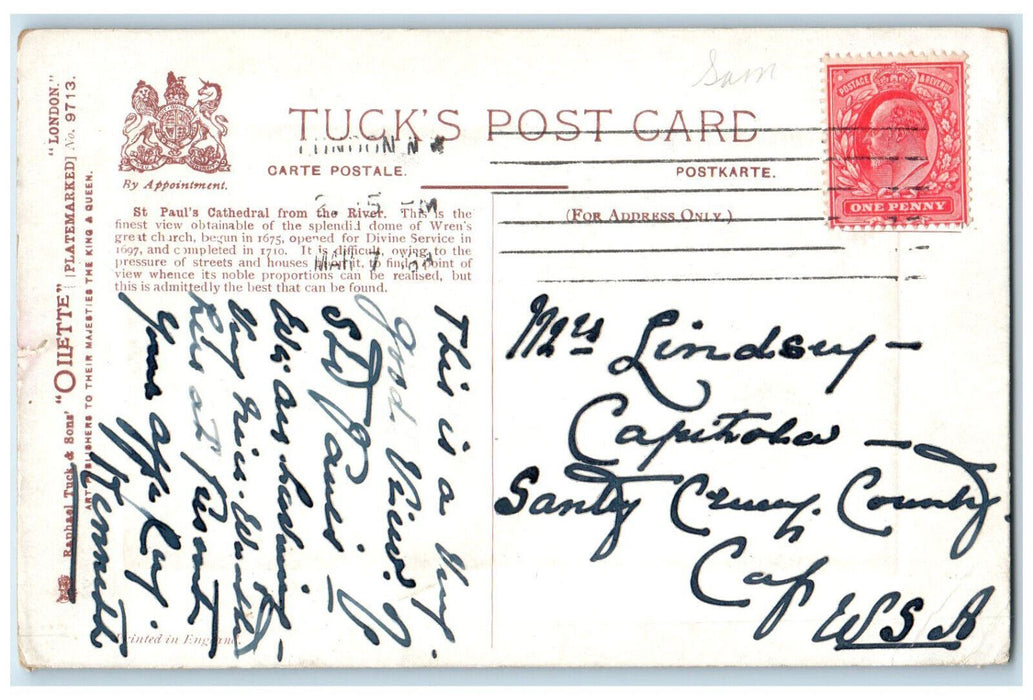 Sam
TUCK'S POST CARD
CARTE POSTALE.
POSTKARTE.
By Appointment.
(FOR ADDRESS ONLY.)
LONDON N
5 PM
MAR 7
POSTAGE & REVENUE
ONE PENNY
St Paul's Cathedral from the River. This is the
finest view obtainable of the splendid dome of Wren's
great church, begun in 1675, opened for Divine Service in
1697, and completed in 1710. It is difficult, owing to the
pressure of streets and houses about it, to find a point of
view whence its noble proportions can be realised, but
this is admittedly the best that can be found.
Raphael Tuck & Sons' "OILETTE" [PLATEMARKED] No. 9713.
"LONDON."
ART PUBLISHERS TO THEIR MAJESTIES THE KING & QUEEN.
This is a very
good view of
St Pauls
We are having
very nice weather
here at present
Yours
Kenneth
Mrs Lindsey –
Capitola –
Santy Cruz, County.
Caf
USA
Printed in England.